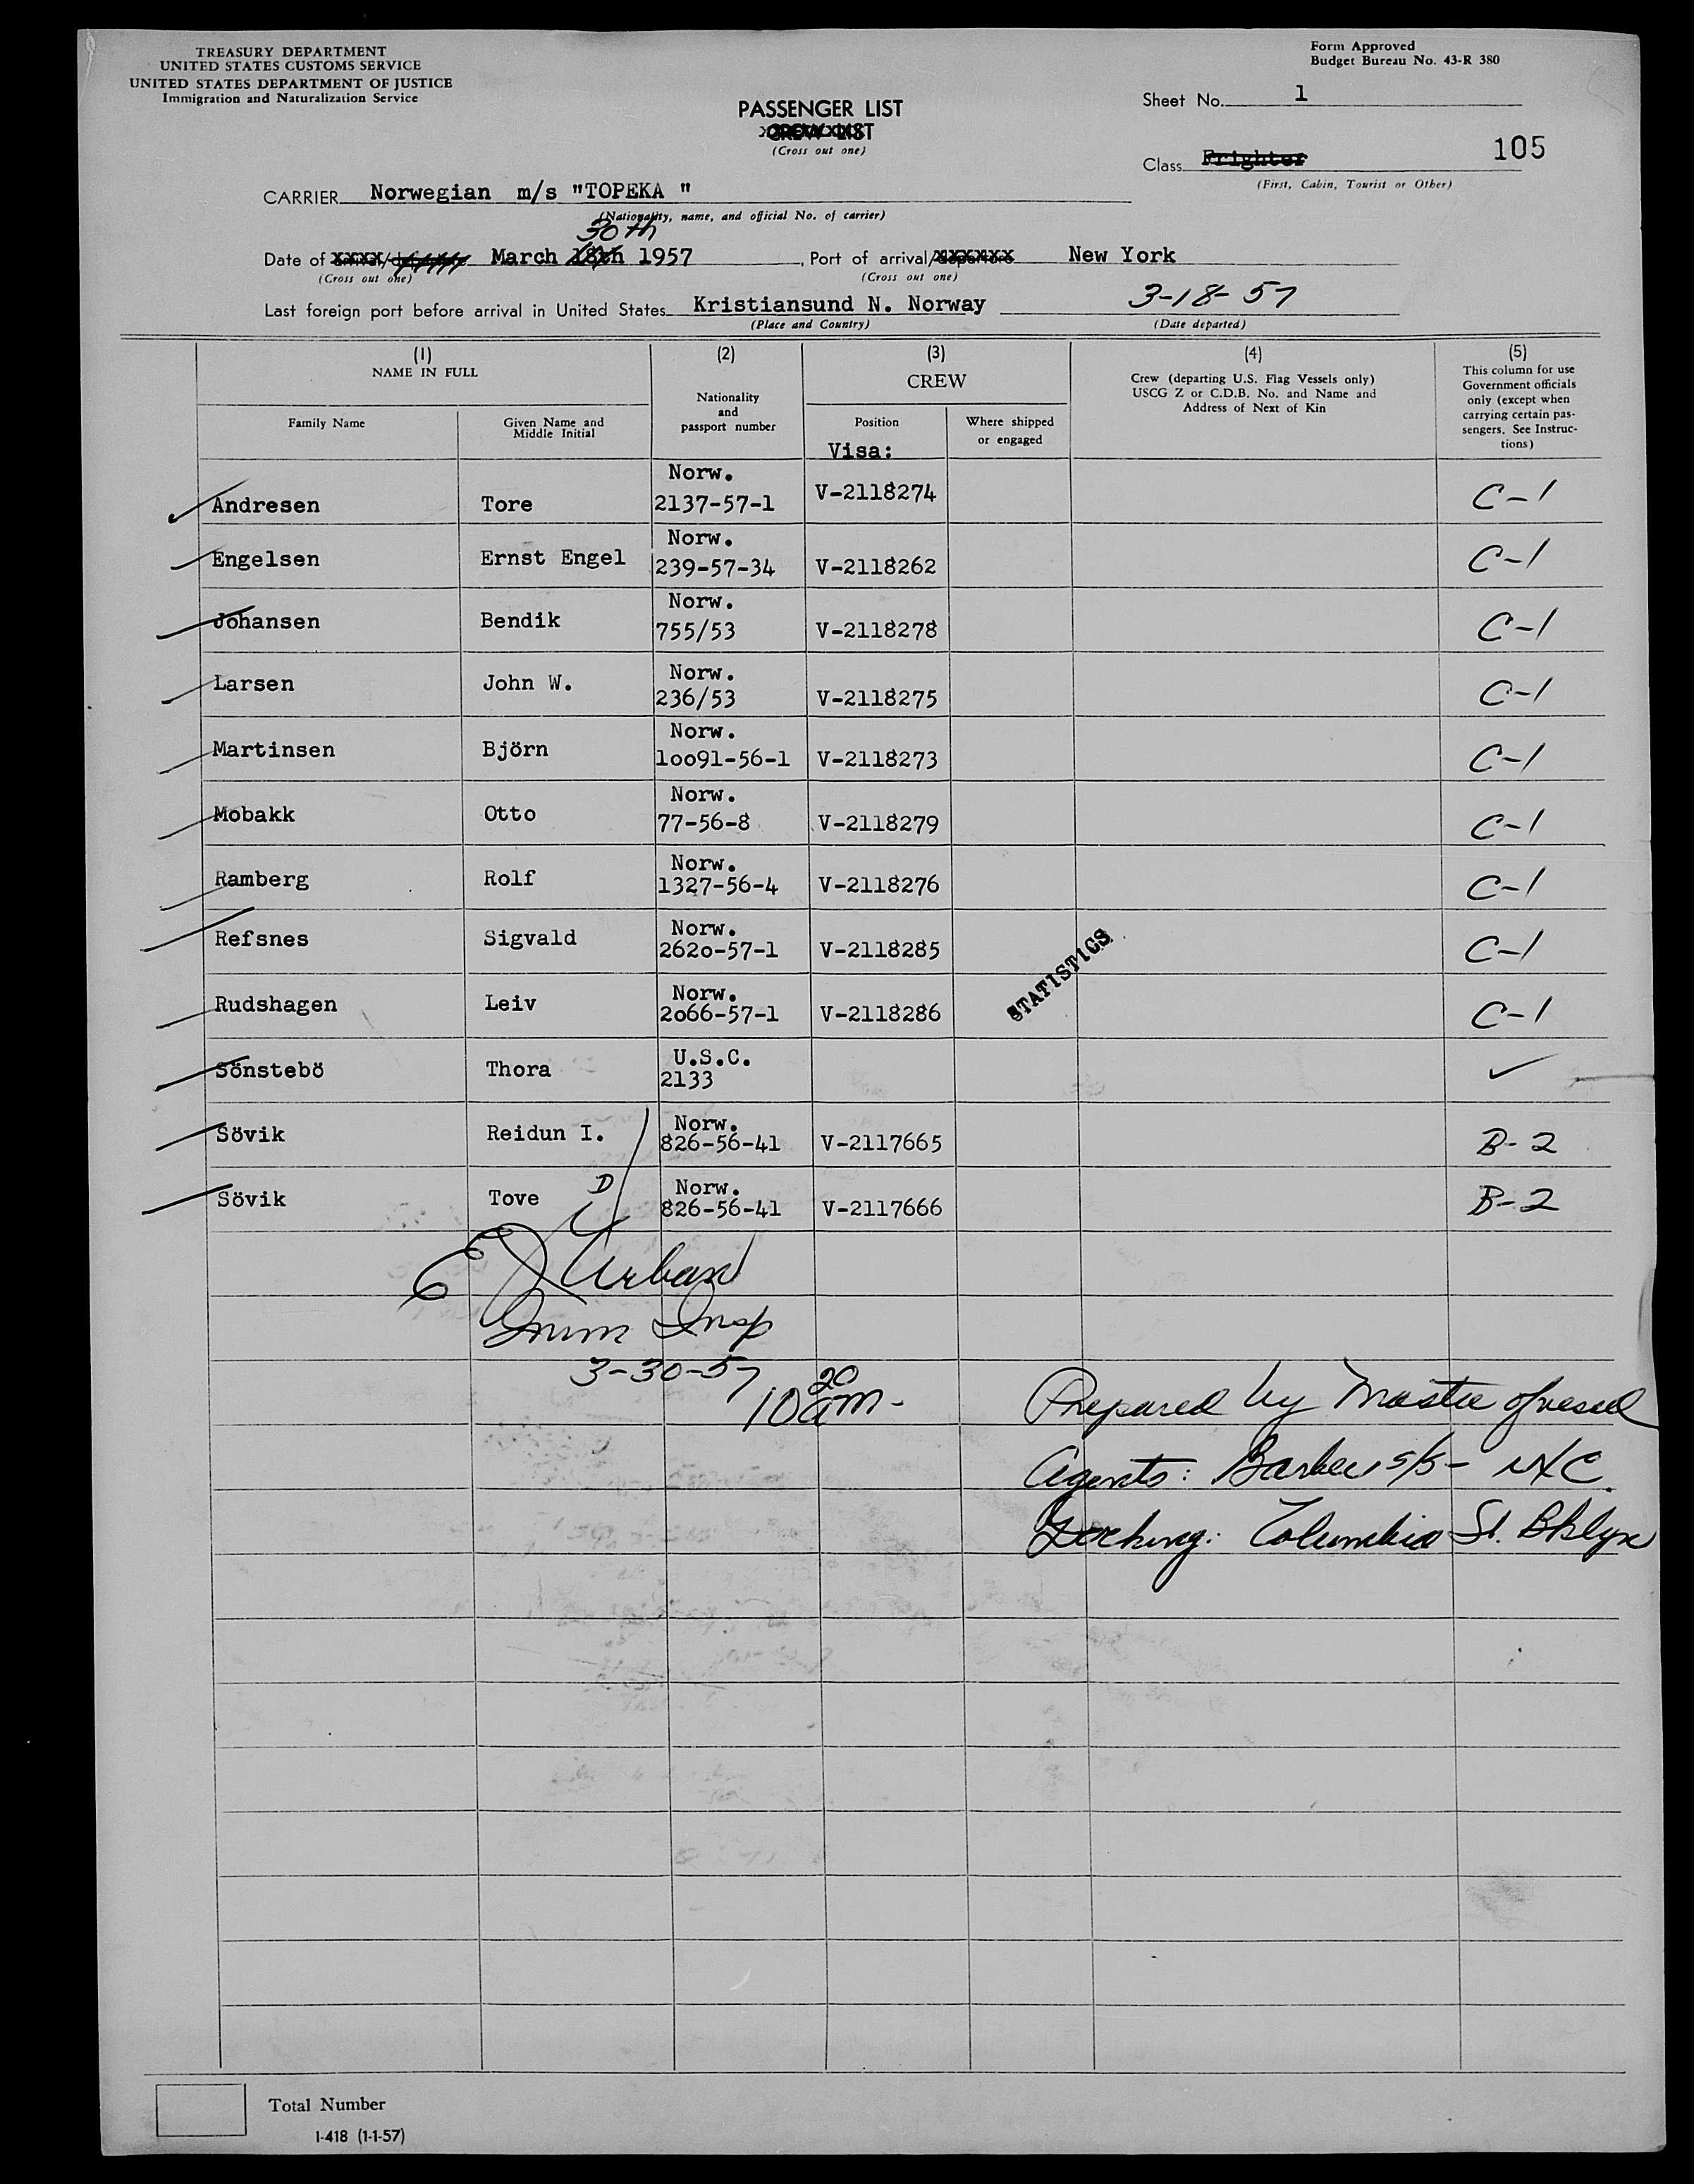 TREASURY DEPARTMENT
UNITED STATES CUSTOMS SERVICE
UNITED STATES DEPARTMENT OF JUSTICE
Immigration and Naturalization Service
Form Approved
Budget Bureau No. 43-R 380
Sheet No. 1
PASSENGER LIST
CREW LIST
(Cross out one)
Class Frighter 105
(First, Cabin, Tourist or Other)
CARRIER Norwegian m/s "TOPEKA "
(Nationality, name, and official No. of carrier)
30th
Date of arrival/departure March 18th 1957, Port of arrival/departure New York
(Cross out one) (Cross out one)
Last foreign port before arrival in United States Kristiansund N. Norway 3-18-57
(Place and Country) (Date departed)
(1) (2) (3) (4) (5)
NAME IN FULL
Family Name
Given Name and
Middle Initial
Nationality
and
passport number
CREW
Position
Where shipped
or engaged
Visa:
Crew (departing U.S. Flag Vessels only)
USCG Z or C.D.B. No. and Name and
Address of Next of Kin
This column for use
Government officials
only (except when
carrying certain pas-
sengers. See Instruc-
tions)
Norw.
Andresen Tore 2137-57-1 V-2118274 C-1
Norw.
Engelsen Ernst Engel 239-57-34 V-2118262 C-1
Norw.
Johansen Bendik 755/53 V-2118278 C-1
Norw.
Larsen John W. 236/53 V-2118275 C-1
Norw.
Martinsen Björn 1oo91-56-1 V-2118273 C-1
Norw.
Mobakk Otto 77-56-8 V-2118279 C-1
Norw.
Ramberg Rolf 1327-56-4 V-2118276 C-1
Norw.
Refsnes Sigvald 262o-57-1 V-2118285 C-1
STATISTICS
Norw.
Rudshagen Leiv 2o66-57-1 V-2118286 C-1
U.S.C.
Sönstebö Thora 2133 ✓
Norw.
Sövik Reidun I. 826-56-41 V-2117665 B-2
Norw.
Sövik Tove D 826-56-41 V-2117666 B-2
E J Urban
Imm Insp
3-30-57
10 20 am-
Prepared by Master of vessel
Agents: Barber S/S - NYC.
Docking: Columbia St. Bklyn
Total Number
I-418 (1-1-57)